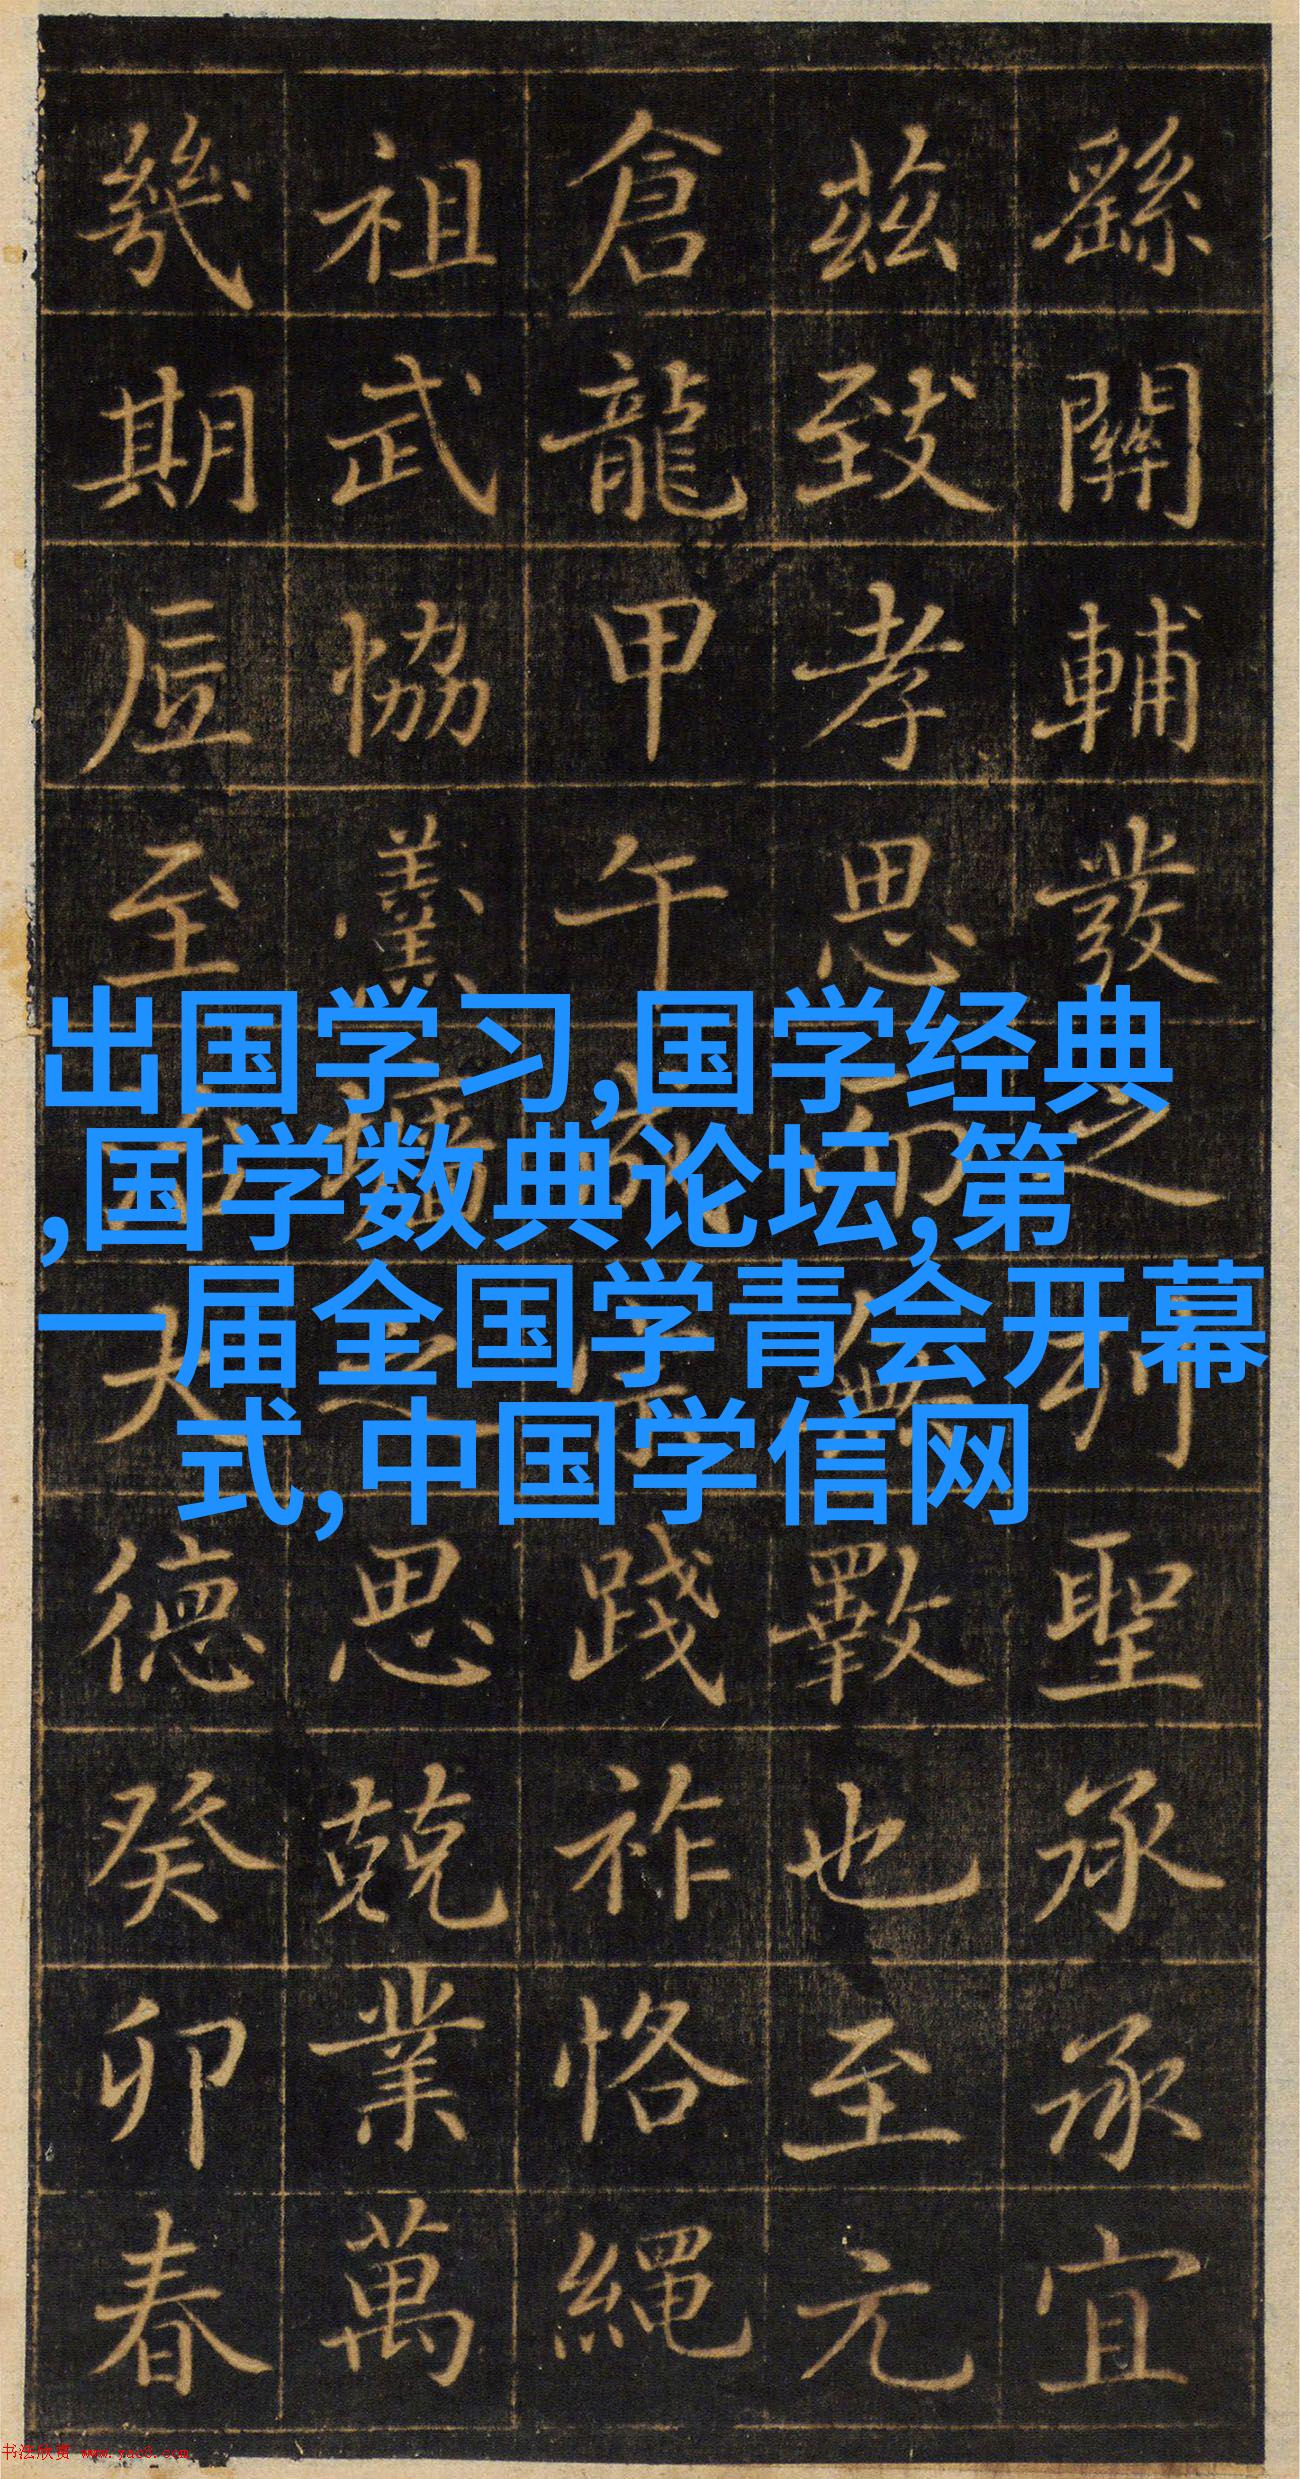 出国学习,国学经典
,国学数典论坛,第
一届全国学青会开幕
式,中国学信网
繇關輔發之列聖承承宜
茲致孝思無斁也至元
倉龍甲午踐祚恪繩
祖武協羹墻之思兢業萬
幾期至大德癸卯春
书法欣赏 www.yac8.com